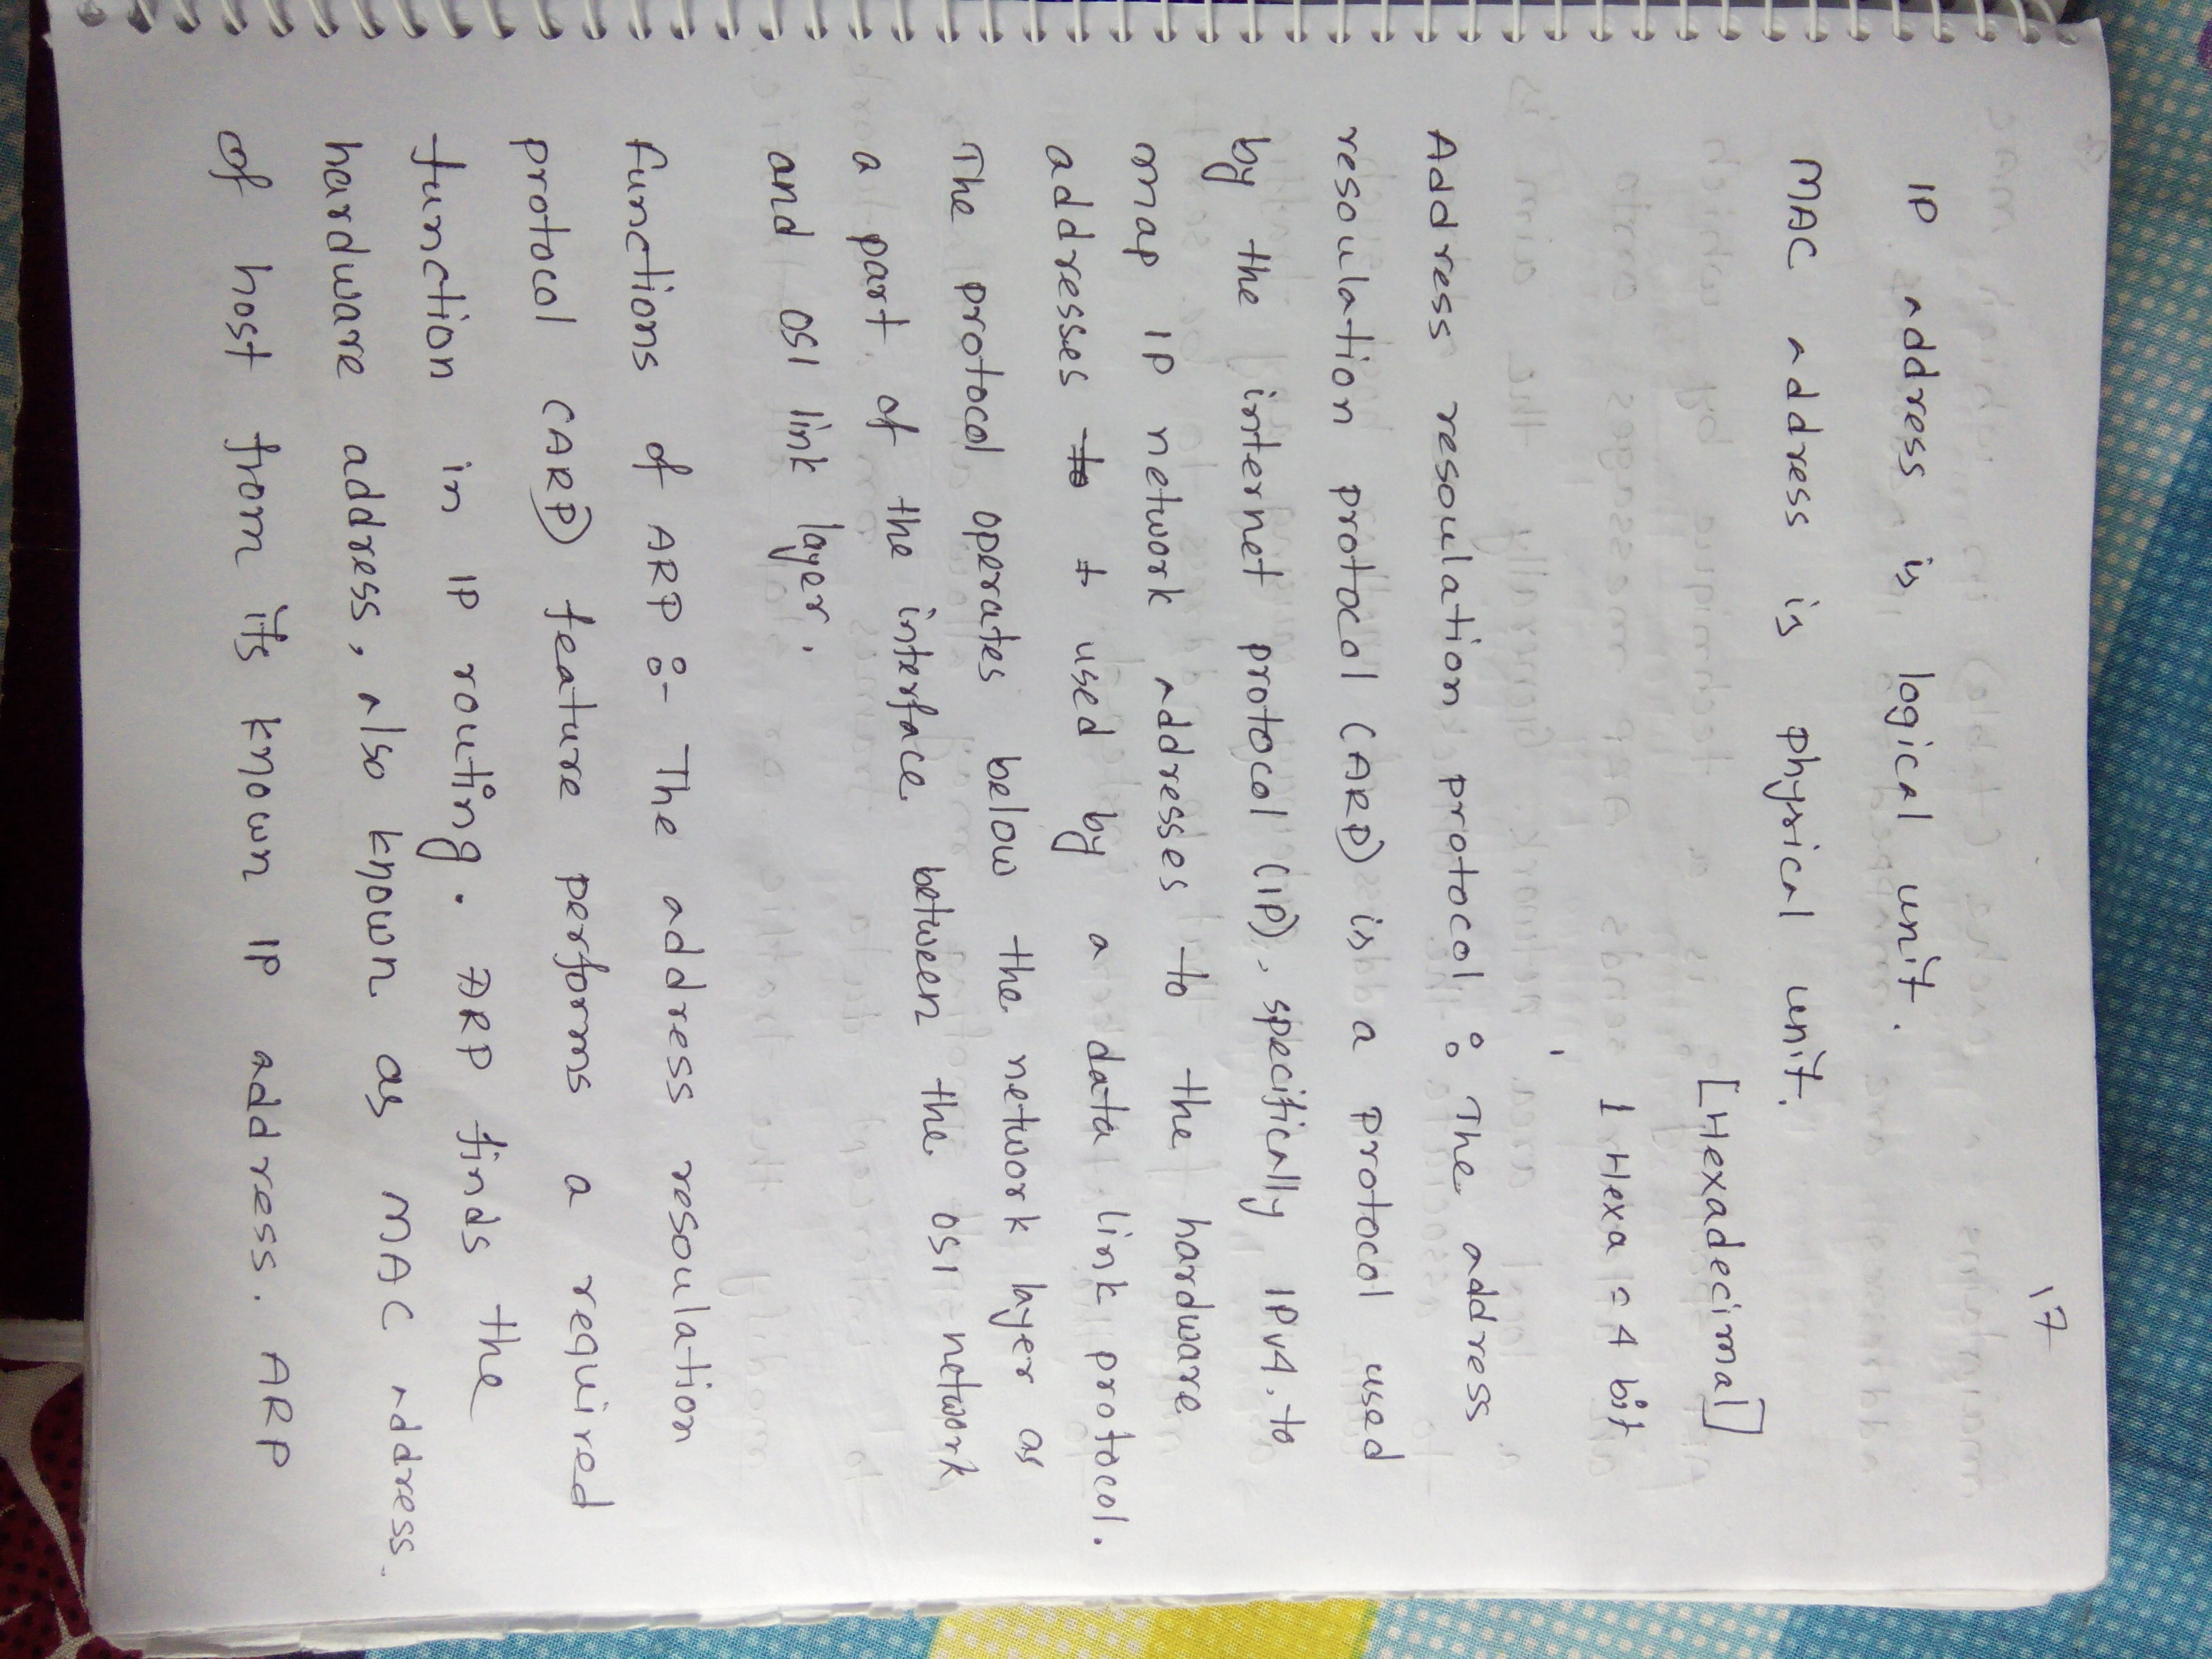 17
IP address is logical unit.
MAC address is physical unit.
[Hexadecimal]
1 Hexa = 4 bit
Address resoulation protocol : The address
resoulation protocol (ARP) is a protocol used
by the internet protocol (IP), specifically IPv4, to
map IP network addresses to the hardware
addresses to t used by a data link protocol.
The protocol operates below the network layer as
a part of the interface between the OSI network
and OSI link layer.
Functions of ARP :- The address resoulation
protocol (ARP) feature performs a required
function in IP routing. ARP finds the
hardware address, also known as MAC address.
of host from its known IP address. ARP